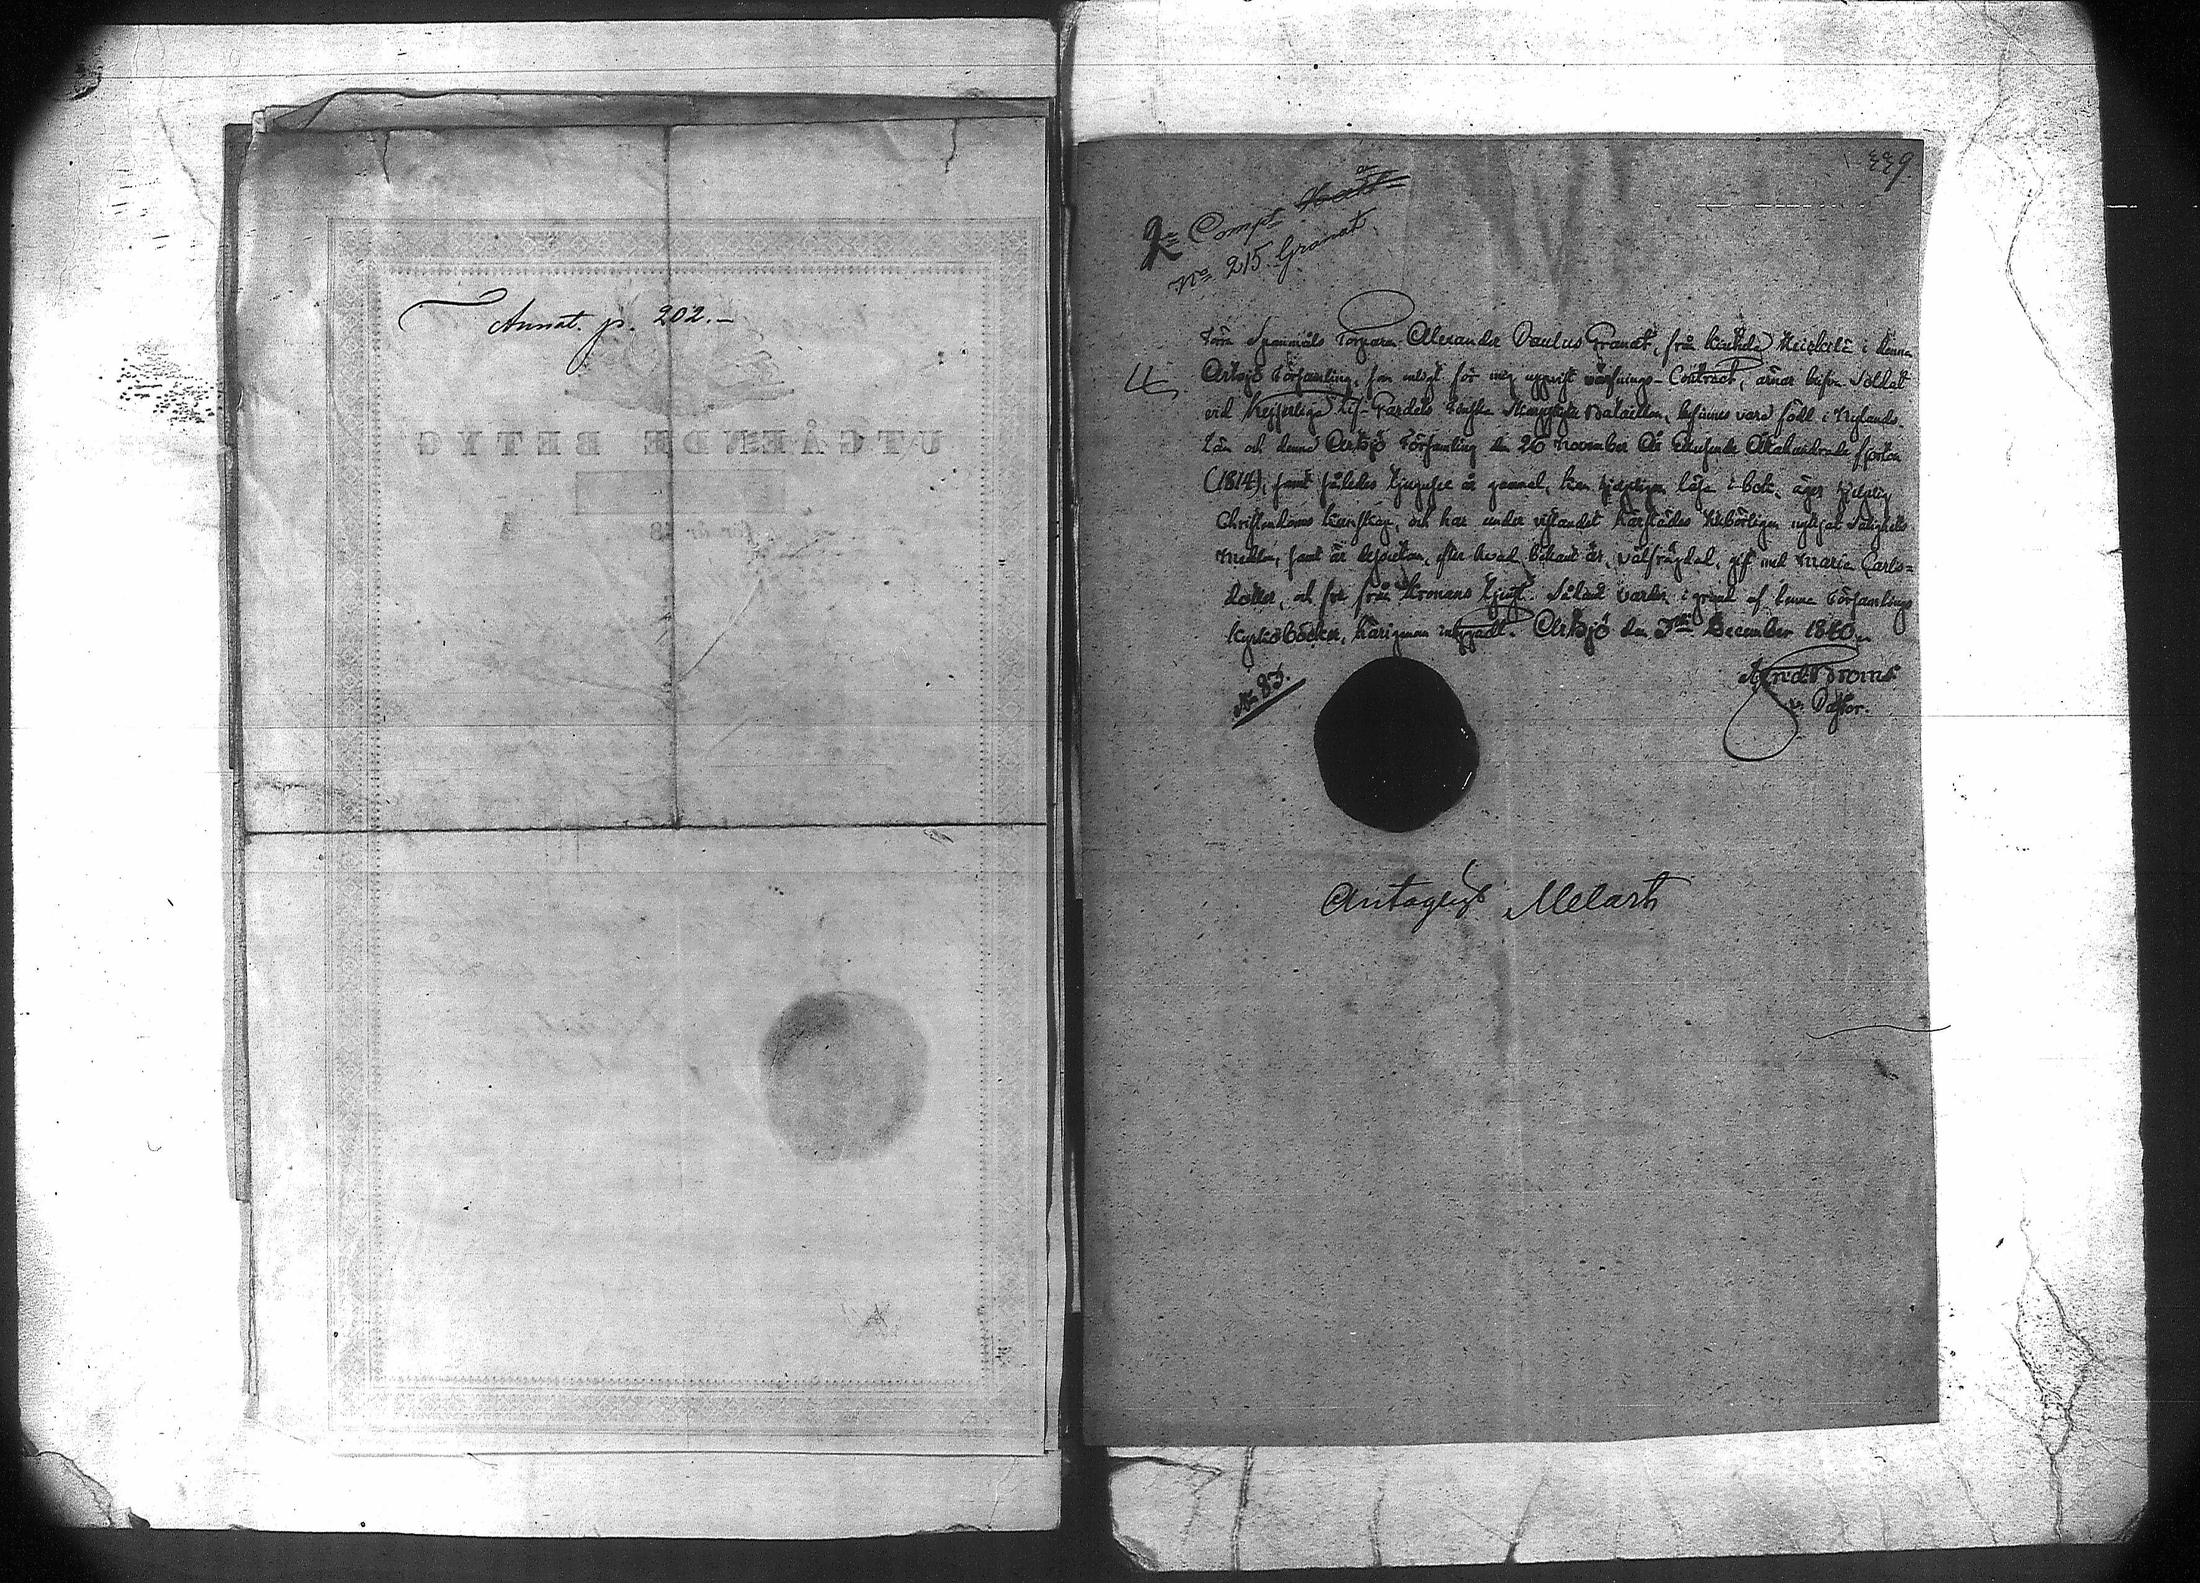 Annot. p. 202.
UTGÅENDE BETYG
för år 18
339.
2= Comp=
N= 215. Granat.
Förra Spanmåls Torparen Alexander Paulus Granat, från Heickilä i denna
Artsjö Församling, som enligt för mig uppvist värfnings-Contract, ärnar blifva Soldat
vid Kejserliga Lif-Gardets Finska Skarpskytte Bataillon, befinnes vara född i Nylands
Län och denna Artsjö Församling den 26 November År Ettusende Åttahundrade fjorton
(1814), samt således tjugusex år gammal, kan läsa i bok, äger
Christendoms kunskap, och har under vistandet härstädes behörigen nyttjat Salighets
medlen, samt är dessutom, efter hvad bekant är, välfrägdad, gift med Maria Carls-
dotter, och fri från Kronans tjenst. Sådant varder i grund af denna Församlings
Kyrkoböcker, härigenom intygadt. Artsjö den 3 December 1840.
No 83.
v. Pastor.
Antaglig Melart